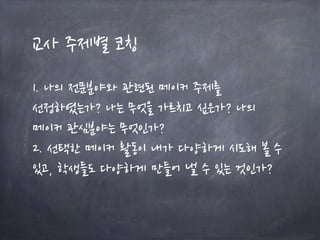 교사 주제별 코칭
1. 나의 전문분야와 관련된 메이커 주제를
선정하였는가? 나는 무엇을 가르치고 싶은가? 나의
메이커 관심분야는 무엇인가?
2. 선택한 메이커 활동이 내가 다양하게 시도해 볼 수
있고, 학생들도 다양하게 만들어 낼 수 있는 것인가?